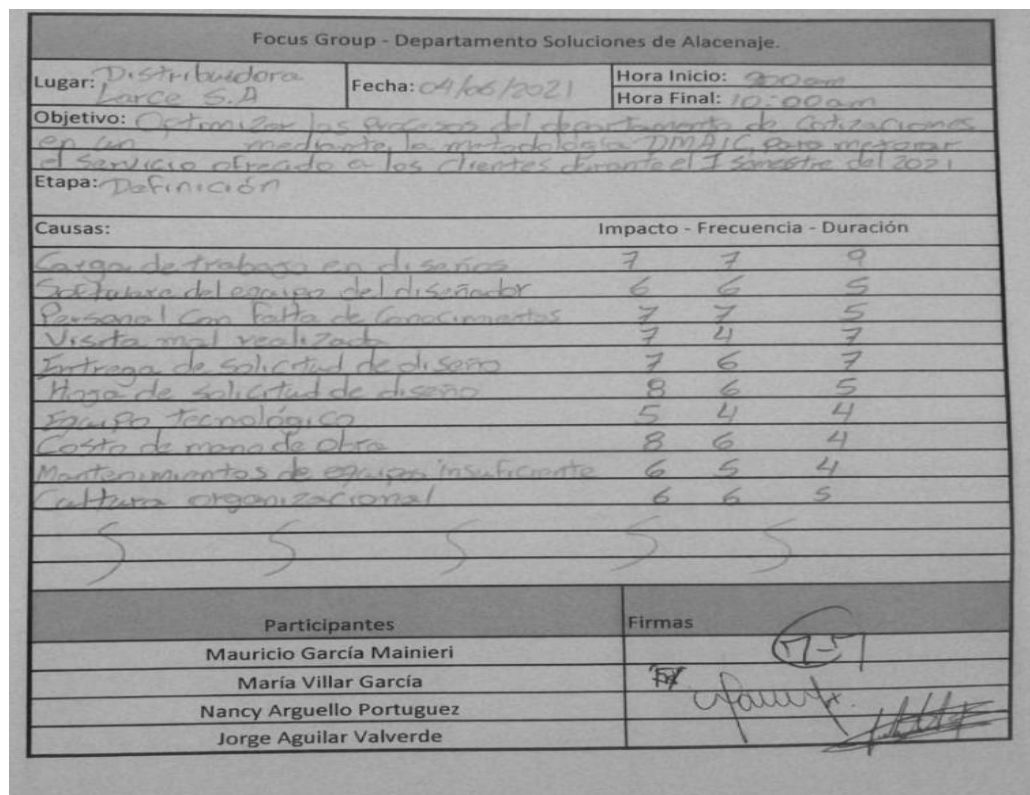 Focus Group - Departamento Soluciones de Alacenaje.
Lugar: Distribuidora
Larce S.A
Fecha: 04/06/2021
Hora Inicio: 9:00am
Hora Final: 10:00am
Objetivo: Optimizar los procesos del departamento de Cotizaciones
en un mediante, la metodología DMAIC, para mejorar
el servicio ofrecido a los clientes durante el I semestre del 2021
Etapa: Definición
Causas: Impacto - Frecuencia - Duración
Carga de trabajo en diseños 7 7 9
Software del equipo del diseñador 6 6 5
Personal con falta de Conocimientos 7 7 5
Visita mal realizada 7 4 7
Entrega de solicitud de diseño 7 6 7
Hoja de solicitud de diseño 8 6 5
Equipo Tecnológico 5 4 4
Costo de mano de obra 8 6 4
Mantenimientos de equipos insuficiente 6 5 4
Cultura organizacional 6 6 5
Participantes Firmas
Mauricio García Mainieri
María Villar García
Nancy Arguello Portuguez
Jorge Aguilar Valverde